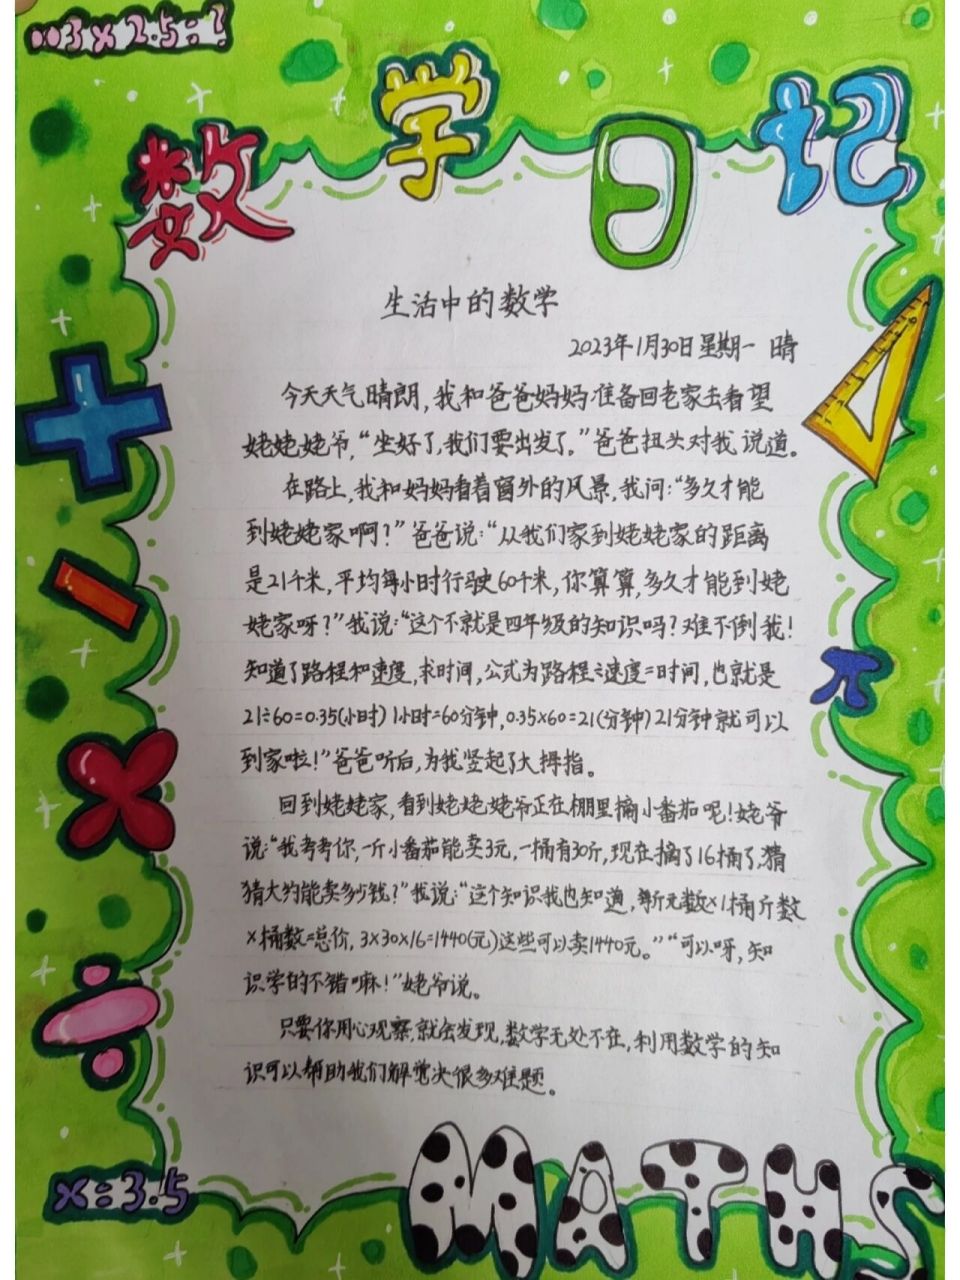 3×2.5=?
数学日记
生活中的数学
2023年1月30日星期一 晴
今天天气晴朗,我和爸爸妈妈准备回老家去看望
姥姥姥爷,“坐好了,我们要出发了。”爸爸扭头对我说道。
在路上,我和妈妈看着窗外的风景,我问:“多久才能
到姥姥家啊?”爸爸说:“从我们家到姥姥家的距离
是21千米,平均每小时行驶60千米,你算算,多久才能到姥
姥家呀?”我说:“这个不就是四年级的知识吗?难不倒我!
知道了路程和速度,求时间,公式为路程÷速度=时间,也就是
21÷60=0.35(小时) 1小时=60分钟,0.35×60=21(分钟)21分钟就可以
到家啦!”爸爸听后,为我竖起了大拇指。
回到姥姥家,看到姥姥姥爷正在棚里摘小番茄呢!姥爷
说:“我考考你,一斤小番茄能卖3元,一桶有30斤,现在摘了16桶了,猜
猜大约能卖多少钱?”我说:“这个知识我也知道,每斤元数×1桶斤数
×桶数=总价,3×30×16=1440(元)这些可以卖1440元。”“可以呀,知
识学的不错嘛!”姥爷说。
只要你用心观察,就会发现,数学无处不在,利用数学的知
识可以帮助我们解决很多难题。
π
x=3.5
MATHS